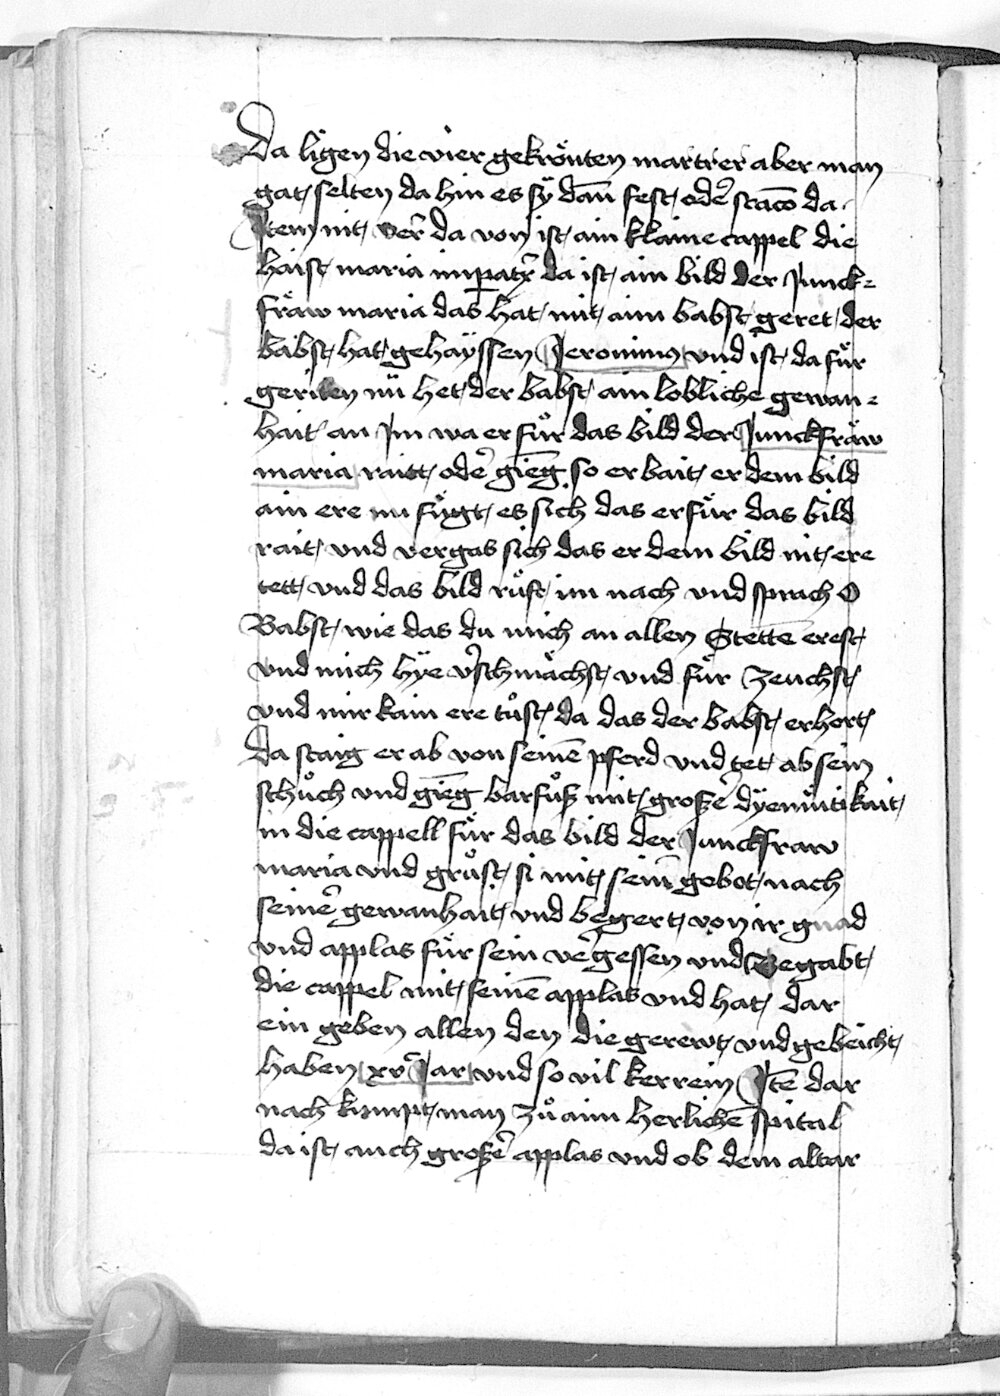 Da ligen die vier gekröuten martrer aber man
gat selten da hin es sÿ dan̄ fest oder̄ stacō da
Item nit ver̄ da von ist ain klaine cappel die
haist maria impatx̄ da ist ain bild der Junck=
fräw maria das hat mit aim babst geret der
babst hat gehayssen Jeronimus vnd ist da für
geriten nu het der babst ain lobliche gewan=
hait an Jm wa er für das bild der Junckfräw
maria raitt oder̄ gieng so erbait er dem bild
ain ere nu fügt es sich das er für das bild
rait vnd vergas sich das er dem bild nit ere
tett vnd das bild růft im nach vnd sprach O
Babst wie das du mich an allen Stettē erest
vnd mich hÿe v̄schmächst vnd für zeuchst
vnd mir kain ere tůst da das der babst erhort
da staig er ab von seinē pferd vnd tet ab sein
schůch vnd gieng barfůß mit großer̄ dÿemütikait
in die cappell für das bild der Junckfraw
maria vnd grůst si mit seim̄ gebot nach
seiner̄ gewanhait vnd begert von ir gnad
vnd applas für sein ver̄gessen vnd Begabt
die cappel mit seinē applas vnd hat dar
ein geben allen den die gerewt vnd gebeicht
haben xv̄ Jar vnd so vil kerrein Itē dar
nach kumpt man zů aim herlichē spital
da ist auch großer̄ applas vnd ob dem altar